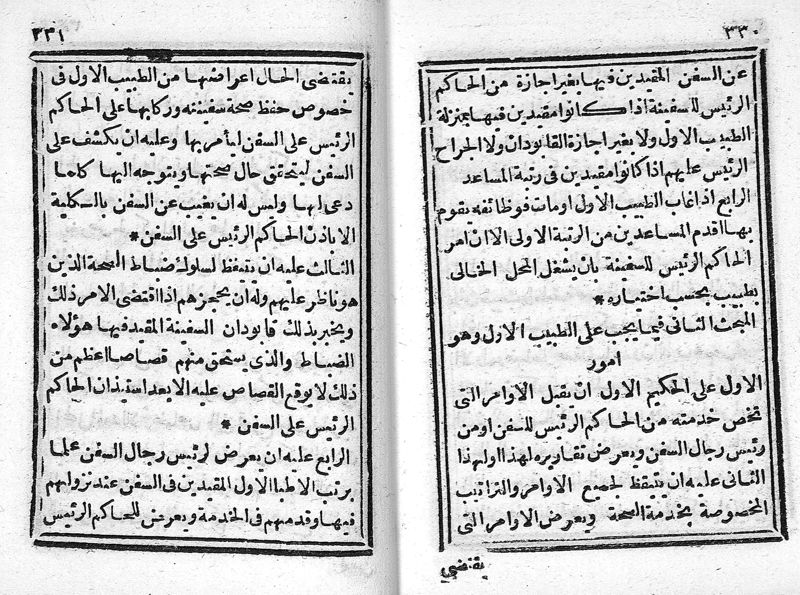 ٣٣٠
عن السفن المقيدين فيها بغير اجازة من الحاكم
الرئيس للسفينة اذا كانوا مقيدين فيها بمنزلة
الطبيب الاول ولا بغير اجازة القابودان ولا الجراح
الرئيس عليهم اذا كانوا مقيدين فى رتبة المساعد
الرابع اذا غاب الطبيب الاول او مات فوظائفه يقوم
بها اقدم المساعدين من الرتبة الاولى الا ان امر
الحاكم الرئيس للسفينة بان يشغل المحل الخالى
بطبيب بحسب اختياره *
المبحث الثانى فيما يجب على الطبيب الاول وهو
امور
الاول على الحكيم الاول ان يقبل الاوامر التى
تخص خدمته من الحاكم الرئيس للسفن او من
رئيس رجال السفن ويعرض تقاريره لهذا اولهذا
الثانى عليه ان يتيقظ لجميع الاوامر والتراتيب
المخصوصة بخدمة الصحة ويعرض الاوامر التى
يقتضى
٣٣١
يقتضى الحال اعراضها من الطبيب الاول فى
خصوص حفظ صحة سفينته وركابها على الحاكم
الرئيس على السفن ليأمر بها وعليه ان يكشف على
السفن ليتحقق حال صحتها ويتوجه اليها كلما
دعى لها وليس له ان يغيب عن السفن بالكلية
الا باذن الحاكم الرئيس على السفن *
الثالث عليه ان يتيقظ لسلوك ضباط الصحة الذين
هو ناظر عليهم وله ان يحجزهم اذا اقتضى الامر ذلك
ويخبر بذلك قابودان السفينة المقيد فيها هؤلاء
الضباط والذى يستحق منهم قصاصا اعظم من
ذلك لا يوقع القصاص عليه الا بعد استيذان الحاكم
الرئيس على السفن *
الرابع عليه ان يعرض لرئيس رجال السفن علما
برتب الاطبا الاول المقيدين فى السفن عند نزولهم
فيها وقدمهم فى الخدمة ويعرض للحاكم الرئيس